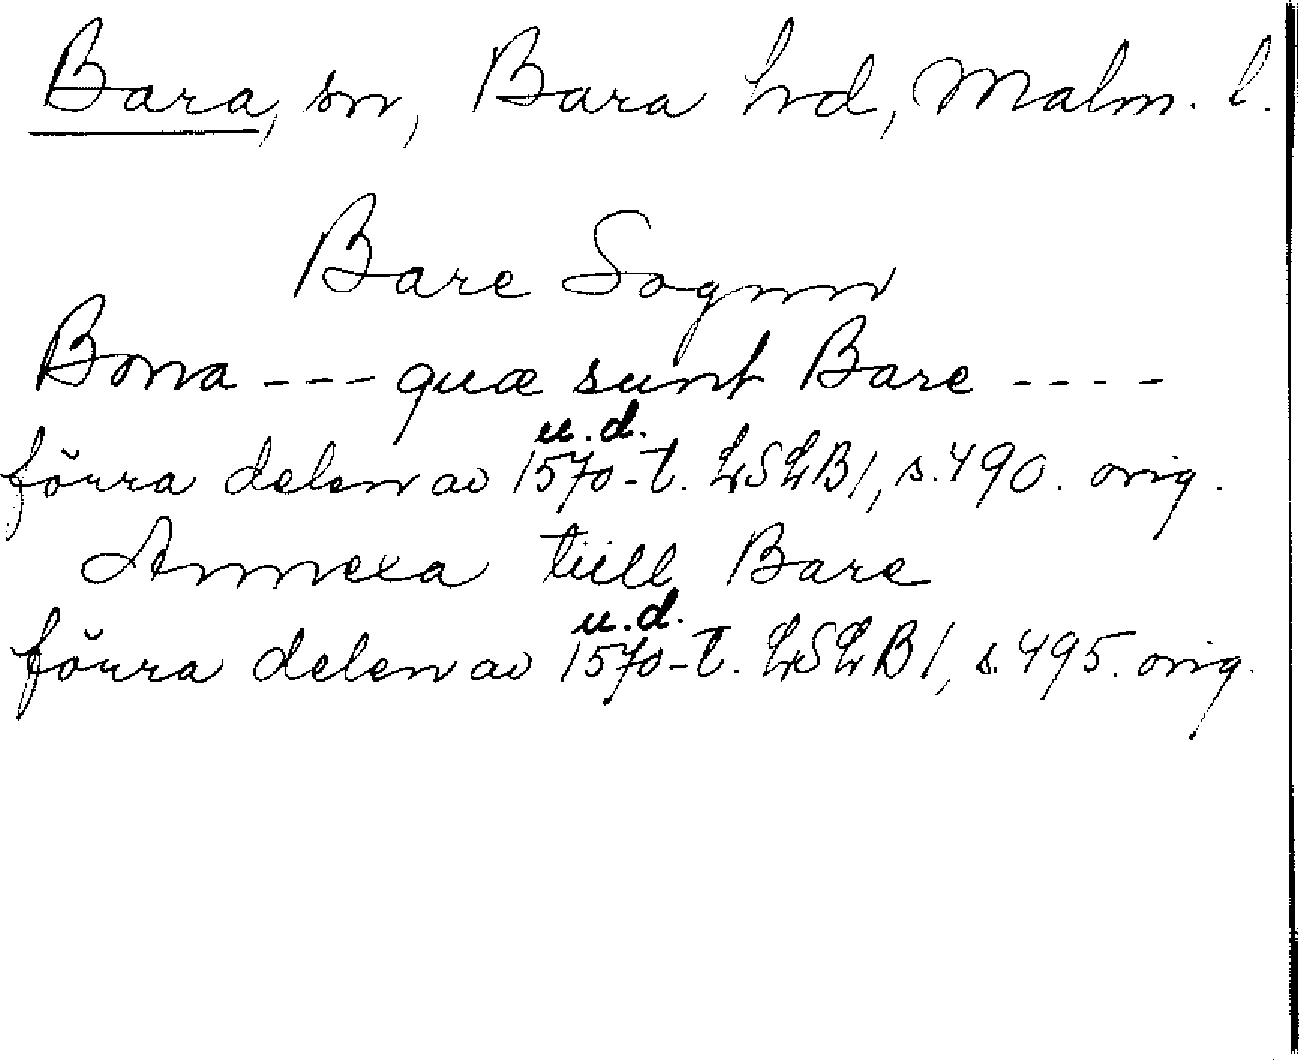 Bara, sn, Bara hd, Malm. l.
Bare Sognn
Bona --- quæ sunt Bare ----
u.d.
förra delen av 1570-t. LSLB1, s.490. orig.
Annexa tiill Bare
u.d.
förra delen av 1570-t. LSLB1, s.495. orig.